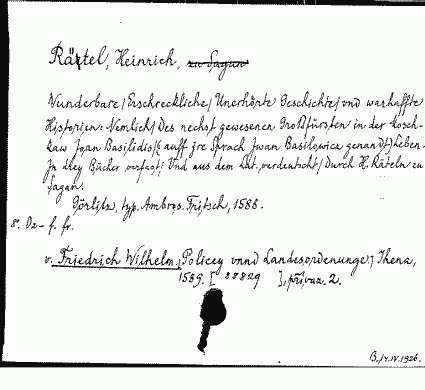 Rätel, Heinrich, zu Sagan
Wunderbare/ Erschreckliche/ Unerhörte Geschichte/ vnd warhaffte
Historien: Nemlich/ Des nechst gewesenen Großfürsten in der Mosch-
kaw Joan Basilidis/( auff jre Sprach Jwan Basilowicz genandt/) Leben.
In drey Bücher verfast/ Vnd aus dem Lat. verdeutscht/ Durch H. Räteln zu
Sagan.
Görlitz, typ. Ambros. Fritsch, 1588.
8º. Oz- f. fr.
v. Friedrich Wilhelm, Policey vnnd Landesordenunge/ Jhena,
1589. [ 88829 ], priuaz. 2.
B. 14.IV.1926.